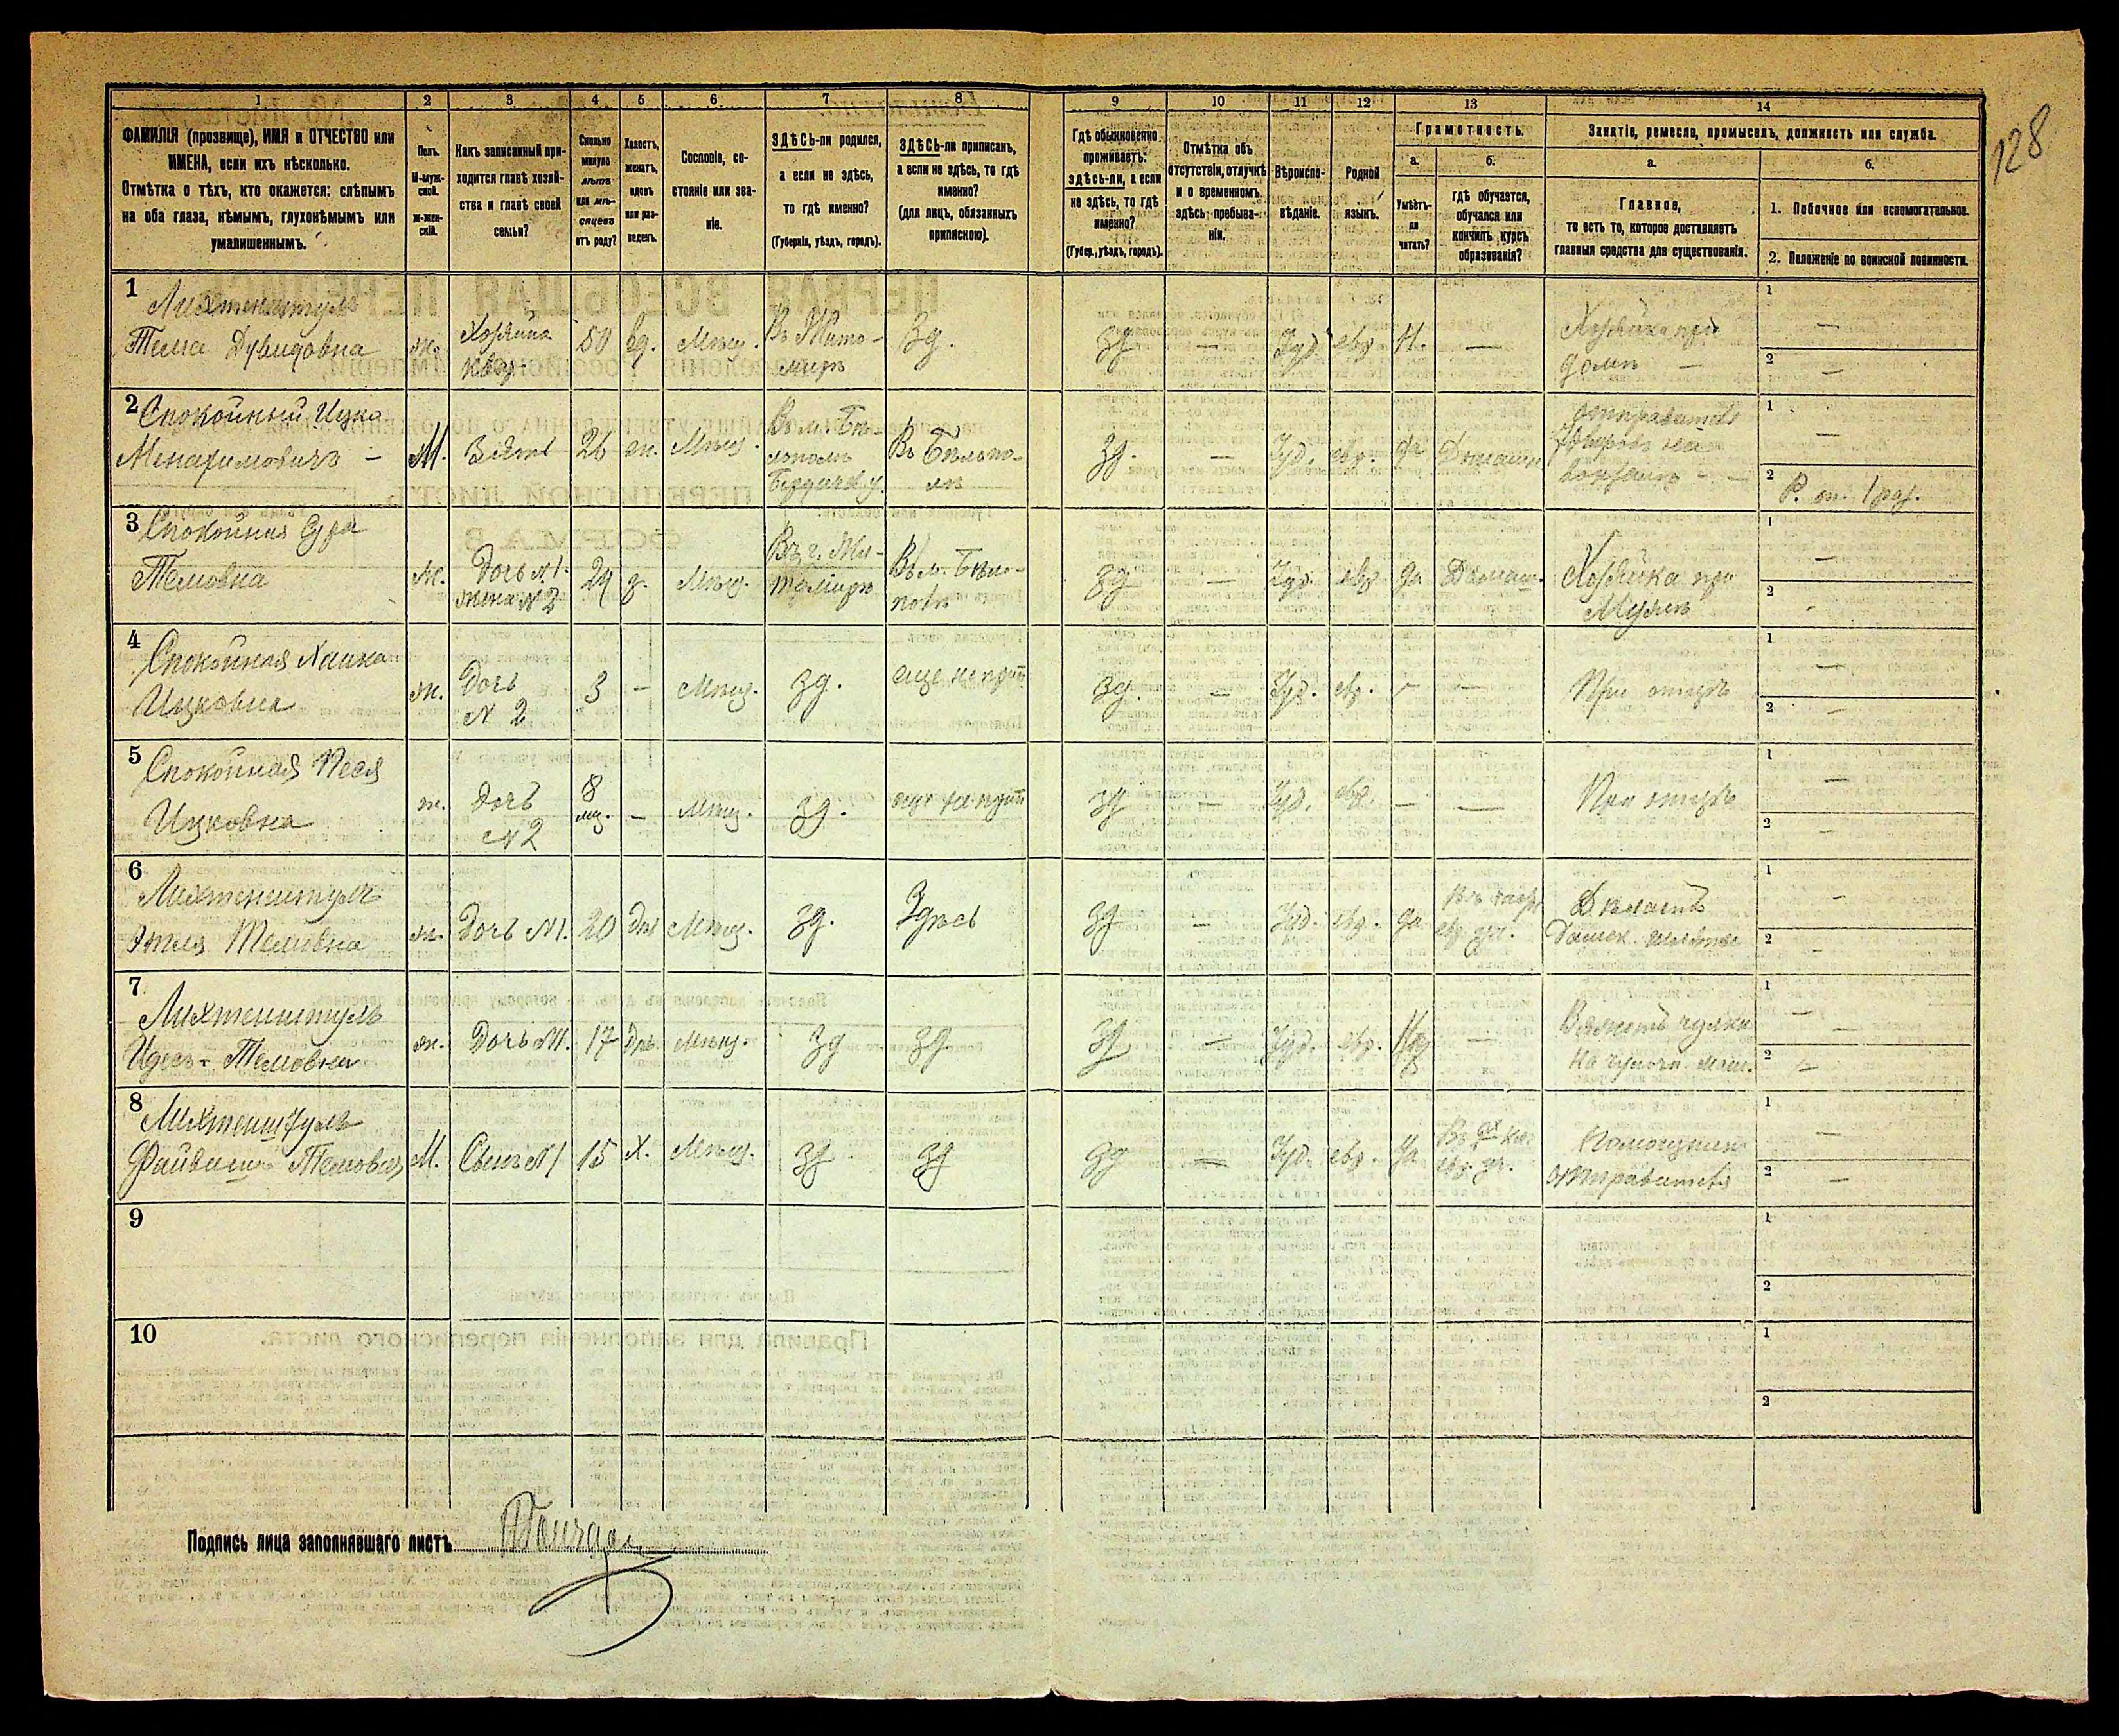 128
1 2 3 4 5 6 7 8 9 10 11 12 13 14
ФАМИЛІЯ (прозвище), ИМЯ и ОТЧЕСТВО или ИМЕНА, если ихъ нѣсколько.
Отмѣтка о тѣхъ, кто окажется: слѣпымъ на оба глаза, нѣмымъ, глухонѣмымъ или умалишеннымъ.
Полъ. М-мужской. Ж-женскій.
Какъ записанный приходится главѣ хозяйства и главѣ своей семьи?
Сколько минуло лѣтъ или мѣсяцевъ отъ роду?
Холостъ, женатъ, вдовъ или разведенъ.
Сословіе, состояніе или званіе.
ЗДѢСЬ-ли родился, а если не здѣсь, то гдѣ именно?
(Губернія, уѣздъ, городъ).
ЗДѢСЬ-ли приписанъ, а если не здѣсь, то гдѣ именно?
(для лицъ, обязанныхъ припискою).
Гдѣ обыкновенно проживаетъ: здѣсь-ли, а если не здѣсь, то гдѣ именно?
(Губер., уѣздъ, городъ).
Отмѣтка объ отсутствіи, отлучкѣ и о временномъ здѣсь пребываніи.
Вѣроисповѣданіе.
Родной языкъ.
Грамотность.
а. Умѣетъ-ли читать?
б. Гдѣ обучается, обучался или кончилъ курсъ образованія?
Занятіе, ремесло, промыселъ, должность или служба.
а. Главное,
то есть то, которое доставляетъ главныя средства для существованія.
б.
1. Побочное или вспомогательное.
2. Положеніе по воинской повинности.
1 Лихтенштуль
Тема Дувидовна ж. Хозяйка квар. 50 вд. Мѣщ. Въ Житомирѣ зд. зд — Іуд евр Н. — Хозяйка при домѣ — 1 — 2 —
2 Спокойный Ицко
Менахимовичъ — М. Зять 26 ж. Мѣщ. Въ м. Бѣлополѣ Бердичев у. Въ Бѣлополѣ зд. — Іуд. евр. да Домашн 1 — 2 Р. оп. 1 раз.
3 Спокойная Сура
Темовна Ж. Дочь N 1. жена N 2 24 Мѣщ. Въ г. Житомирѣ Въ м. Бѣлополѣ зд — Іуд. евр да Домаш. Хозяйка при Мужѣ 1 — 2
4 Спокойная Хайка
Ицковна ж. Дочь N 2 3 — Мѣщ. зд. еще не прип зд. — Іуд. евр. — — При отцѣ 1 — 2 —
5 Спокойная Песя
Ицковна ж. Дочь N 2 8 мѣс. — Мѣщ. зд. еще не прип зд — Іуд. евр. — — При отцѣ 1 — 2 —
6 Лихтенштуль
Этля Темовна ж. Дочь N1. 20 Мѣщ. зд. Здѣсь зд — Іуд. евр. да евр. уч. Дѣлаетъ 1 — 2 —
7 Лихтенштуль
Идесъ - Темовна ж. Дочь N1. 17 Мѣщ. зд зд. зд — Іуд. евр. — Вяжетъ чулки на чулочн. маш. 1 — 2 —
8 Лихтенштуль
Файвишъ Темовичъ М. Сынъ N1 15 Х. Мѣщ. зд. зд зд — Іуд. евр. да евр. уч. Помощникъ отправителя 1 — 2 —
9 1 2
10 1 2
Подпись лица заполнявшаго листъ